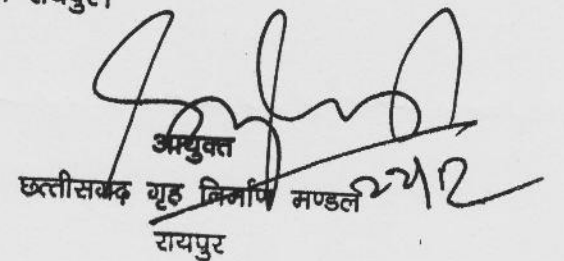 रायपुर।
आयुक्त
छत्तीसगढ़ गृह निर्माण मण्डल
रायपुर